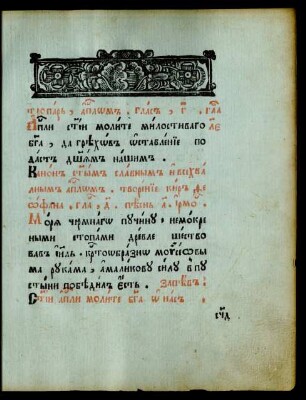 тропарь, апⷭ҇лѡмъ, гласъ, г҃. гла
Апⷭ҇ли ст҃їи молите милостиваго
бг҃а, да грѣхѡвъ ѡставленїе по
дастъ дш҃амъ нашимъ.
Канонъ ст҃ымъ славнымъ и всѣхва
лнымъ апⷭ҇лѡмъ. творенїе киръ ѳе
ѡфана, гла, д҃. пѣснь, а҃. їрмо.
Моря чермнагѡ пучину, немокре
ными стопами древле шество
вавъ їи҃ль. крⷭ҇тоѡбразнѡ моѵсеовы
ма рукама, амаликову силу в пу
стыни побѣдилъ есть. запѣвъ.
Ст҃їи апⷭ҇ли молите бг҃а ѡ насъ.